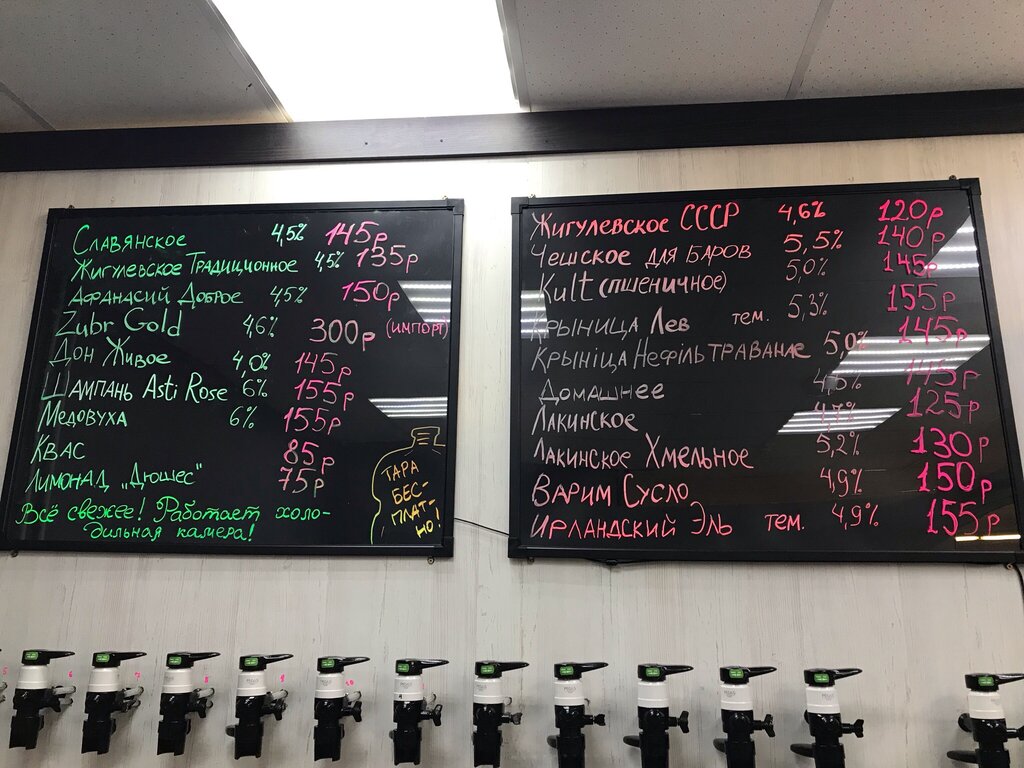 Славянское 4,5% 145р
Жигулевское Традиционное 4,5% 135р
Афанасий Доброе 4,5% 150р
Zubr Gold 4,6% 300р (импорт)
Дон Живое 4,0% 145р
Шампань Asti Rose 6% 155р
Медовуха 6% 155р
Квас 85р
Лимонад „Дюшес" 75р
Всё свежее! Работает холо-
дильная камера!
Тара
бес-
плат-
но!
Жигулевское СССР 4,6% 120р
Чешское для баров 5,5% 140р
Kult (пшеничное) 5,0% 145р
Крыница Лев тем. 5,3% 155р
Крынiца Нефiльтраванае 5,0% 145р
Домашнее 4,5% 145р
Лакинское 4,7% 125р
Лакинское Хмельное 5,2% 130р
Варим Сусло 4,9% 150р
Ирландский Эль тем. 4,9% 155р